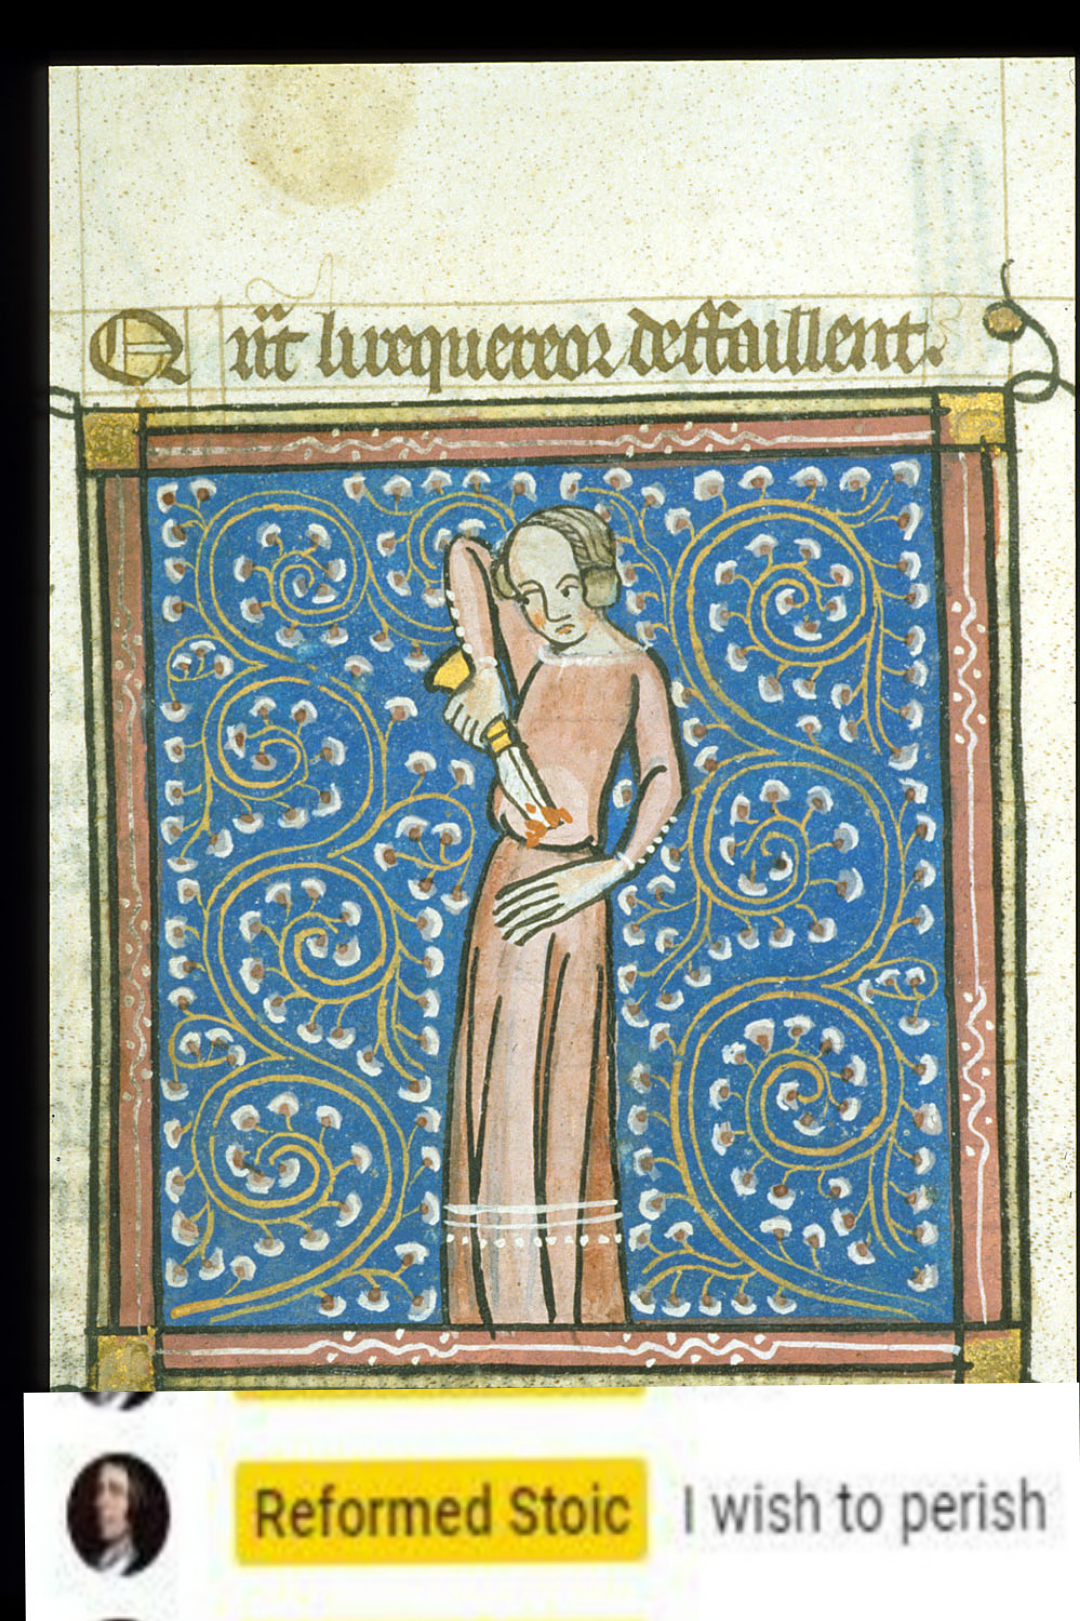 Qũt li requereor deffaillent.
Reformed Stoic I wish to perish